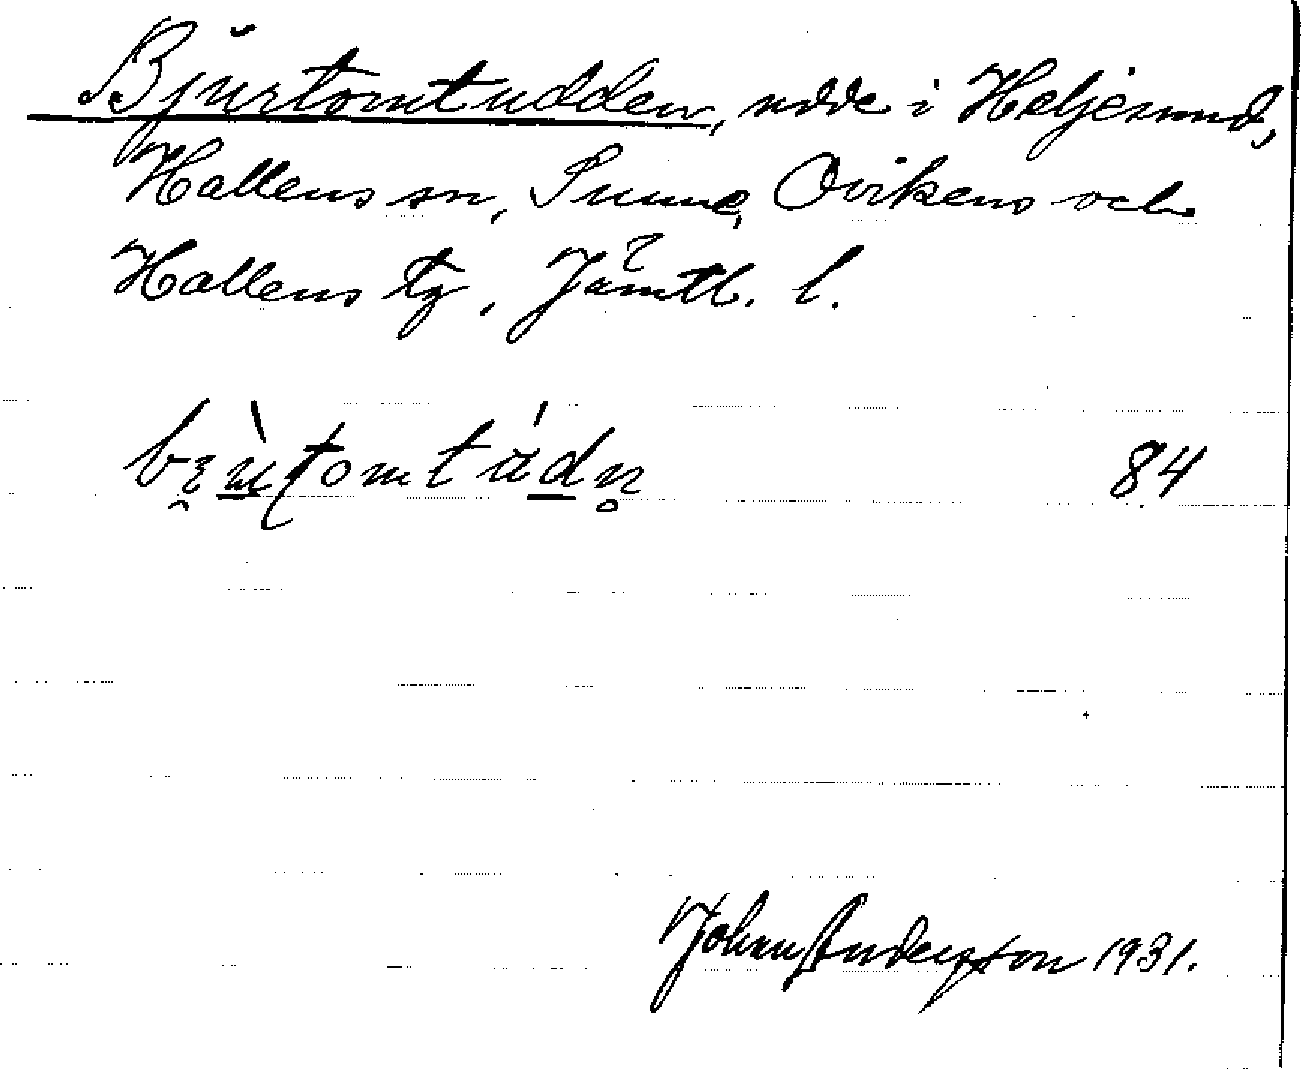 Bjurtomtudden, udde i Heljesund,
Hallens sn, Sunne, Ovikens och
Hallens tg, Jämtl. l.
84
Johan Anderson 1931.